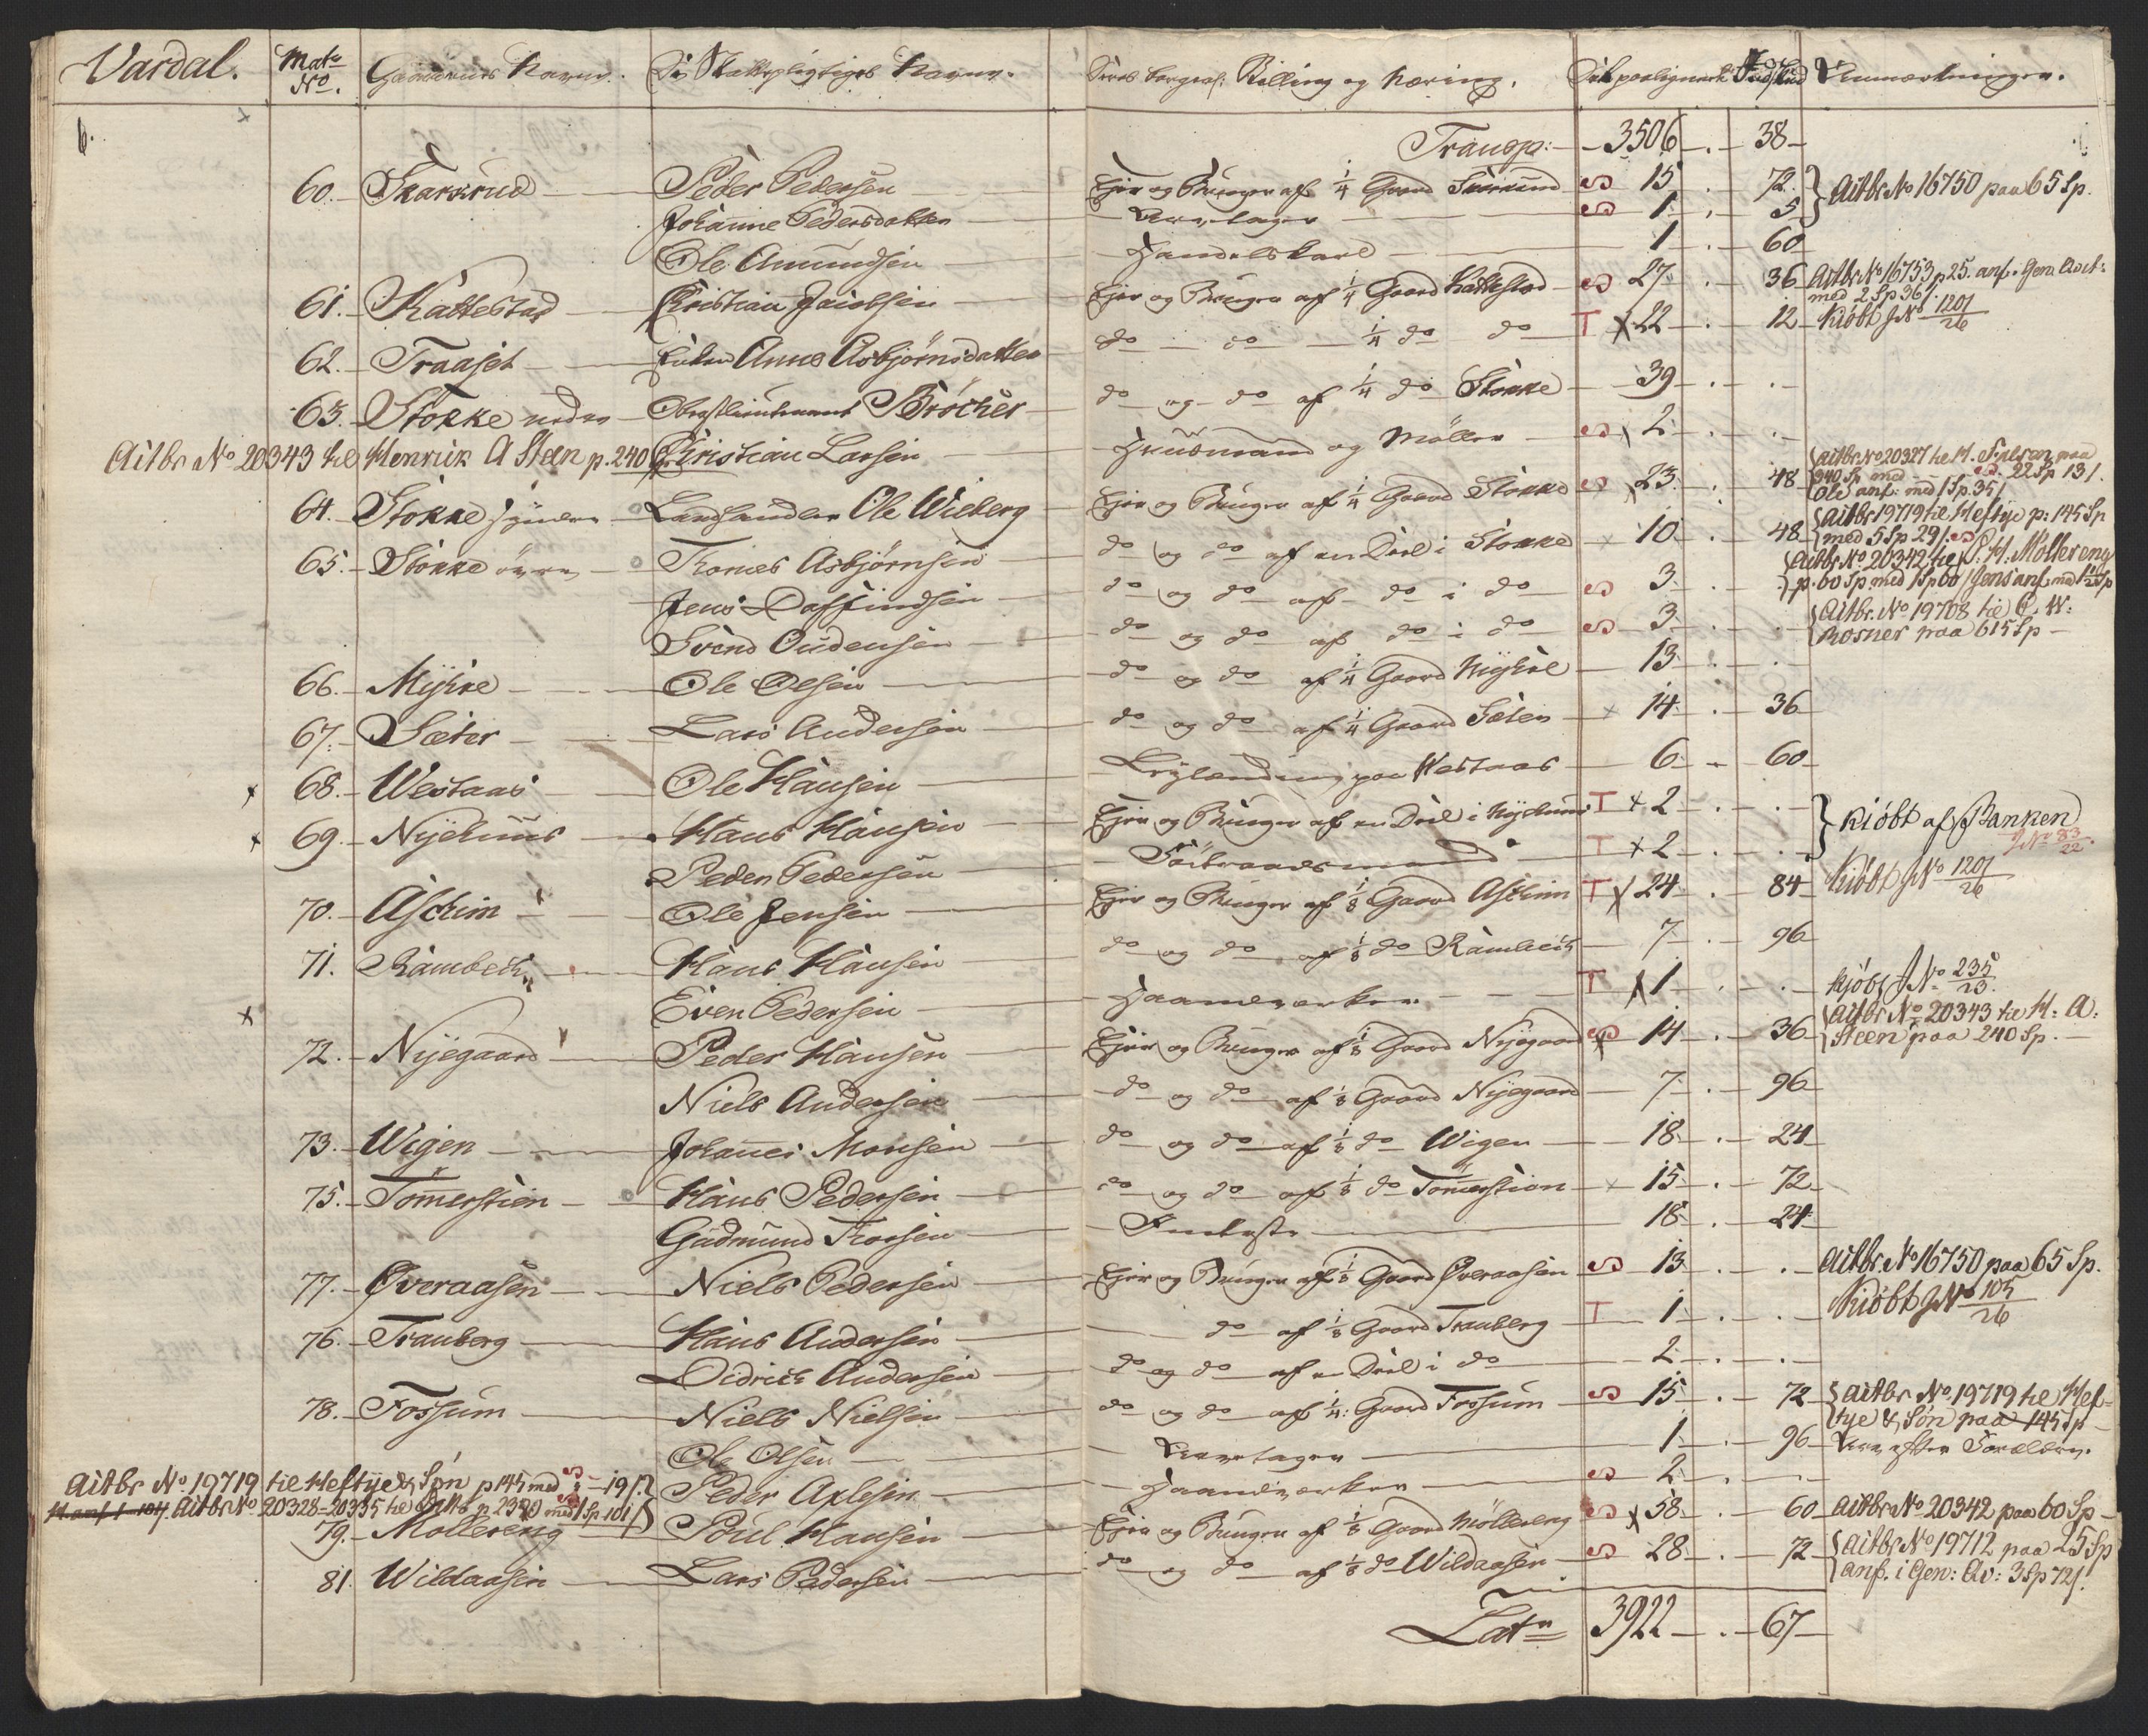 Vardal. Matr No. Gaardenes Navne. De Skattepligtiges Navne. Deres borgerl: Stilling og Næring. Det paalignede Indskud Anmærkninger.
6. Transp: 3506 . 38
60. Skarsrud Peder Pedersen Ejer og Bruger af 1/4 Gaard Skarsrud S 15 . 72 } Aitbr No 16750 paa 65 Sp.
Johanne Pedersdatter Livetager S 1 . 3
Ole Amundsen Handelskarl 1 . 60
61. Kattestad Christian Jacobsen Ejer og Bruger af 1/4 Gaard Kattestad S 27 . 36 Aitbr No 16753 p 25. anf. Gen. Avit: med 2 Sp 36 /.
62. Traaset Enken Anne Asbjørnsdatter do do 1/4 do do T x 22 . 12 Kiöbt J No 1201/26
63. Stokke nedre Obrestlieutenant Bröcher do og do af 1/4 do Stokke 39 . .
Aitbr No 20343 til Henrik A Steen p. 240 Christian Larsen Huusmand og Møller S x 2 . .
64. Stokke søndre Landhandler Ole Wiberg Ejer og Bruger af 1/4 Gaard Stokke S x 23 . 48 { Aitbr No 20327 til H. Nielsen paa 940 Sp med S 22 Sp 13 /. Ole anf: med 1 Sp. 35 /
65. Stokke övre Thomes Asbjørnsen do og do af en Deel i Stokke x 10 . 48 { Aitbr 19719 til Heftye p: 145 Sp med 5 Sp 29 /. S
Jens Daffindsen do og do af do i do S 3 . . { Aitbr No 20342 til P. H. Möllereng p. 60 Sp. med 1 Sp 60 / Jens anf. med
Svend Oudensen do og do af do i do S 3 . . { Aitbr. No 19708 til P. W: Kosner paa 615 Sp
66. Myhre Ole Olsen do og do af 1/4 Gaard Myhre 13 . .
67. Sæter Lars Andersen do og do af 1/4 Gaard Sæter x 14 . 36
x 68. Westaas Ole Hansen Leylænding paa Westaas 6 . 60
x 69. Nyehuus Hans Hansen Ejer og Bruger af en Deel i Nyehuus T x 2 . . } Kiöbt af Banken J No 83/22.
Peder Pedersen Föderaadsmand T x 2 . .
70. Aschim Ole Jensen Ejer og Bruger af 1/8 Gaard Aschim T x 24 . 84 Kiöbt J No 1201/26
71. Rambech Hans Hansen do og do af 1/8 do Rambech 7 . 96
x Even Pedersen Haandverker T x 1 . . kjöbt J No 235/23.
72. Nyegaard Peder Hansen Ejer og Bruger af 1/8 Gaard Nyegaard S x 14 . 36 { Aitbr No 20343 til H: A: Steen paa 240 Sp.
Niels Andersen do og do af 1/8 Gaard Nyegaard 7 . 96
73. Wigen Johannes Monsen do og do af 1/8 do Wigen 18 . 24
75. Tömerstien Hans Pedersen do og do af 1/8 do Tömerstien x 15 . 72
Gudmund Thorsen Inderste 18 . 24
77. Øveraasen Niels Pedersen Ejer og Bruger af 1/8 Gaard Øveraasen S 13 . . Aitbr. No 16750 paa 65 Sp.
76. Tranberg Hans Andersen do af 1/8 Gaard Tranberg T 1 . . Kiöbt J No 105/26
Didrich Andersen do og do af en Deel i do 2 . .
78. Fossum Niels Nielsen do og do af 1/4: Gaard Fossum S 15 . 72 { Aitbr No 19719 til Heftye & Søn paa 145 Sp
Ole Olsen Livetager 1 . 96 Arv efter Forældre.
Aitbr No 19719 til Heftye & Søn p 145 med S 19 /. Peder Axlesen Haandverker S 2 . .
Aitbr No 20328-20335 til Ditto p 2350 med 1 Sp 101 /
79. Møllereng Poul Hansen Ejer og Bruger af 1/8 Gaard Møllereng S x 58 . 60 Aitbr No 20342 paa 60 Sp
81. Wildaasen Lars Pedersen do og do af 1/8 do Wildaasen S 28 . 72 { Aitbr No 19712 paa 25 Sp anf. i Gen: Av: 3 Sp 72 /.
Latr 3922 . 67